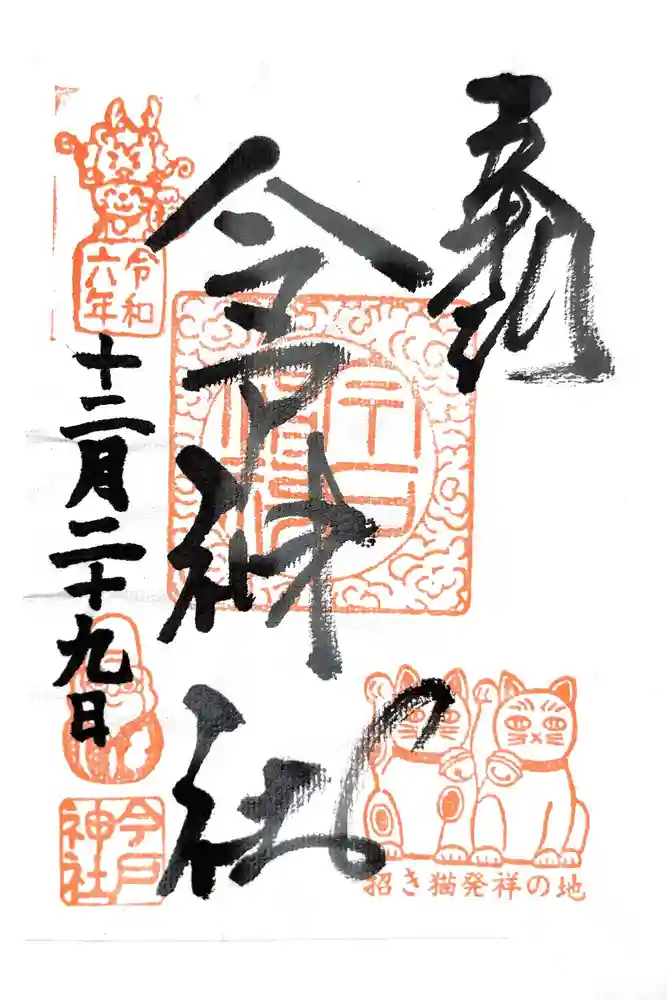 今戸神社
令和
六年
十二月二十九日
今戸
神社
招き猫発祥の地